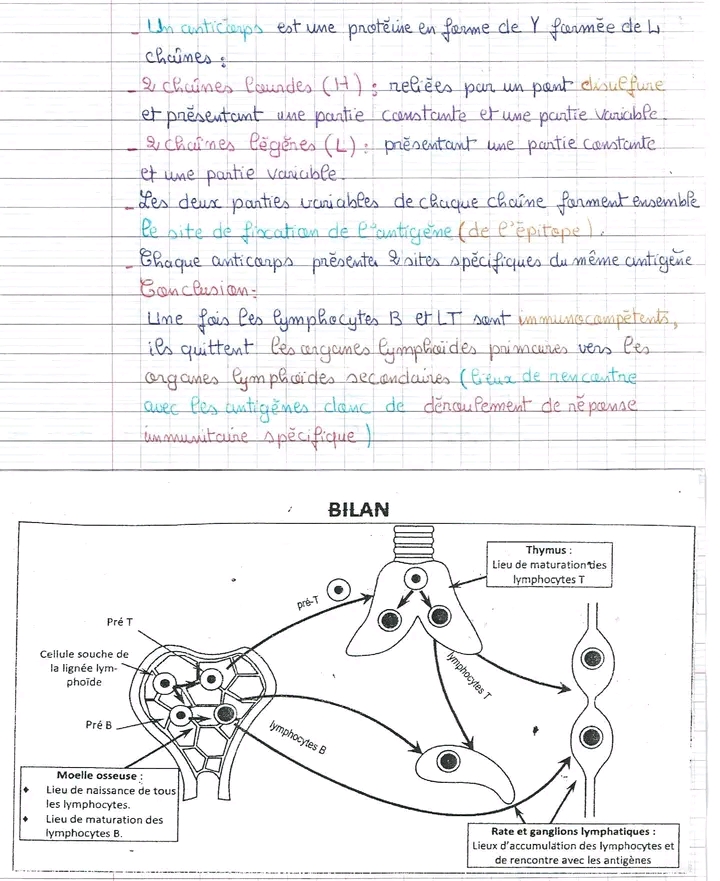 - Un anticorps est une protéine en forme de Y formée de 4
chaînes :
- 2 chaînes lourdes (H) : reliées par un pont disulfure
et présentant une partie constante et une partie variable.
- 2 chaînes légères (L) : présentant une partie constante
et une partie variable.
- Les deux parties variables de chaque chaîne forment ensemble
le site de fixation de l'antigène (de l'épitope).
- Chaque anticorps présente 2 sites spécifiques du même antigène
Conclusion:
Une fois les lymphocytes B et LT sont immunocompétents,
ils quittent les organes lymphoïdes primaires vers les
organes lymphoïdes secondaires (lieux de rencontre
avec les antigènes donc de déroulement de réponse
immunitaire spécifique)
BILAN
Thymus :
Lieu de maturation des
lymphocytes T
pré-T
Pré T
Cellule souche de
la lignée lym-
phoïde
Pré B
lymphocytes T
lymphocytes B
Moelle osseuse :
♦ Lieu de naissance de tous
les lymphocytes.
♦ Lieu de maturation des
lymphocytes B.
Rate et ganglions lymphatiques :
Lieux d'accumulation des lymphocytes et
de rencontre avec les antigènes